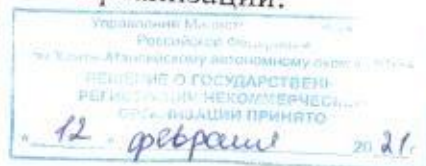 организации.
Управление Минист
Российской Федерации
по Ханты-Мансийскому автономному округу - Югре
РЕШЕНИЕ О ГОСУДАРСТВЕН
РЕГИСТРАЦИИ НЕКОММЕРЧЕС
ОРГАНИЗАЦИИ ПРИНЯТО
" 12 " февраля 20 21 г